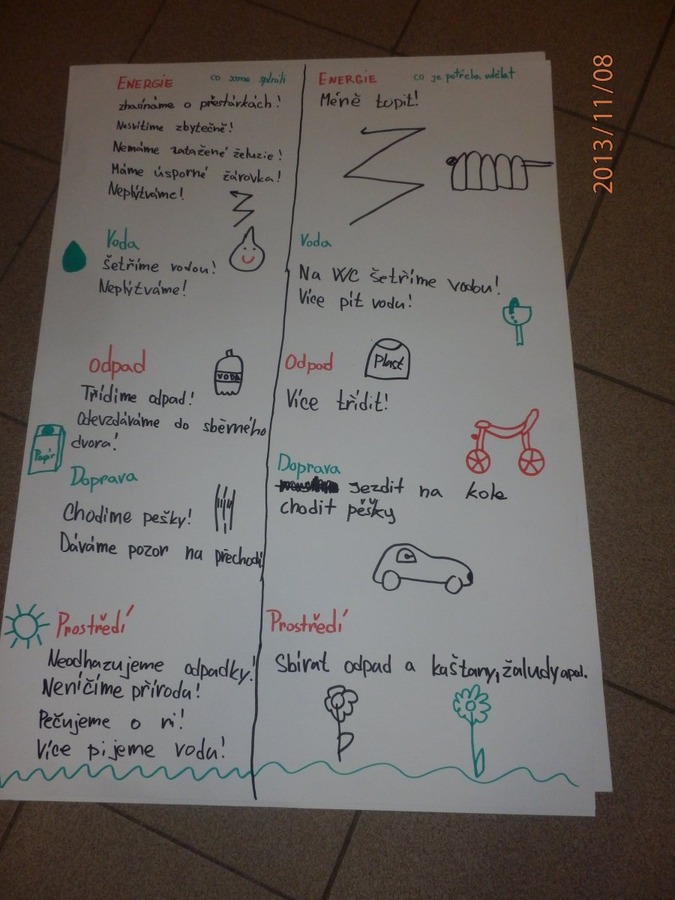 ENERGIE co jsme splnili
zhasínáme o přestávkách!
Nesvítíme zbytečně!
Nemáme zatažené želuzie!
Máme úsporné žárovka!
Neplýtváme!
Voda
šetříme vodou!
Neplýtváme!
odpad
VODA
Třídíme odpad!
Odevzdáváme do sběrného
dvora!
Papír
Doprava
Chodíme pešky!
Dáváme pozor na přechodi
Prostředí
Neodhazujeme odpadky!
Neničíme přírodu!
Pečujeme o ni!
Více pijeme vodu!
ENERGIE co je potřeba udělat
Méně topit!
Voda
Na WC šetříme vodou!
Více pít vodu!
Odpad
Plast
Více třídit!
Doprava
Jezdit na kole
chodit pěšky
Prostředí
Sbírat odpad a kaštany, žaludy apod.
2013/11/08